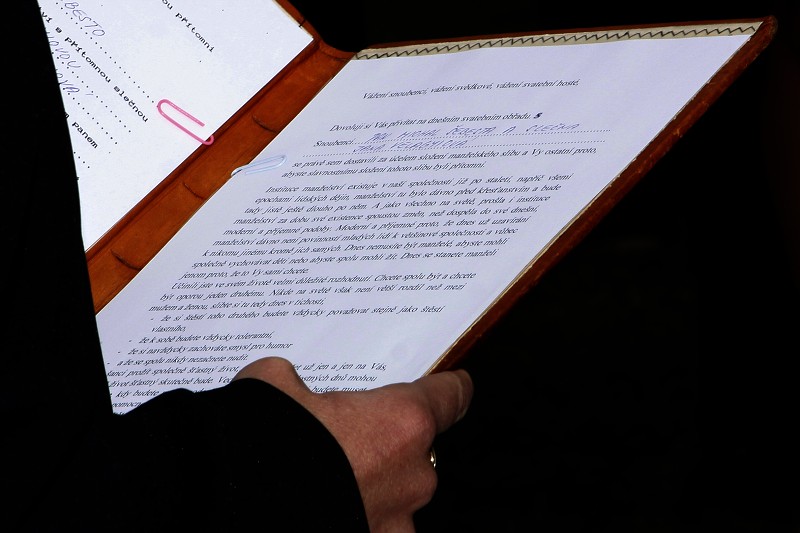 BESTO
ou přítomni
vi s přítomnou slečnou
m panem
Vážení snoubenci, vážení svědkové, vážení svatební hosté,
Dovoluji si Vás přivítat na dnešním svatebním obřadu s
Snoubenci PAN MICHAL A SLEČNA
JANA
se právě sem dostavili za účelem složení manželského slibu a Vy ostatní proto,
abyste slavnostnímu složení tohoto slibu byli přítomni.
Instituce manželství existuje v naší společnosti již po staletí, napříč všemi
epochami lidských dějin, manželství tu bylo dávno před křesťanstvím a bude
tady jistě ještě dlouho po něm. A jako všechno na světě, prošla i instituce
manželství za dobu své existence spoustou změn, než dospěla do své dnešní,
moderní a příjemné podoby. Moderní a příjemné proto, že dnes už uzavírání
manželství dávno není povinností mladých lidí k většinové společnosti a vůbec
k nikomu jinému kromě jich samých. Dnes nemusíte být manželé, abyste mohli
společně vychovávat děti nebo abyste spolu mohli žít. Dnes se stanete manželi
jenom proto, že to Vy sami chcete.
Učinili jste ve svém životě velmi důležité rozhodnutí. Chcete spolu být a chcete
být oporou jeden druhému. Nikde na světě však není větší rozdíl než mezi
mužem a ženou, slibte si tu tedy dnes v tichosti,
- že si štěstí toho druhého budete vždycky považovat stejně jako štěstí
vlastního,
- že k sobě budete vždycky tolerantní,
- že si navždycky zachováte smysl pro humor
- a že se spolu nikdy nezačnete nudit.
prožít společně šťastný život, už jen a jen na Vás,
život šťastný skutečně bude. dnů mohou
kdy budete budete muset